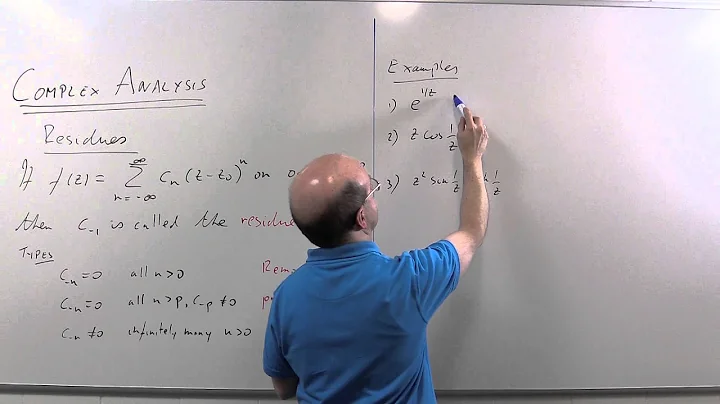 COMPLEX ANALYSIS
Residues
If f(z) = ∞ Σ n=-∞ c_n (z-z_0)^n on
then c_-1 is called the residue
TYPES
c_-n = 0 all n>0
c_-n = 0 all n>p, c_-p ≠ 0
c_-n ≠ 0 infinitely many n>0
Examples
1) e^1/z
2) z cos 1/z
3) z^2 sin 1/z 1/z